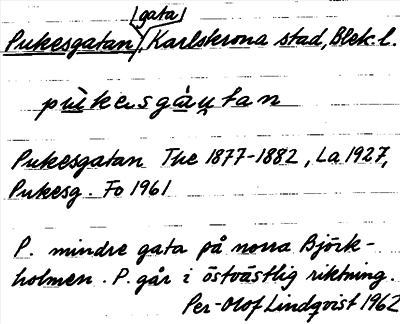 gata
Pukesgatan, Karlskrona stad, Blek. l.
pùkesgàu̯tan
Pukesgatan The 1877-1882, La 1927,
Pukesg. Fo 1961
P. mindre gata på norra Björk-
holmen. P. går i östvästlig riktning.
Per-Olof Lindqvist 1962